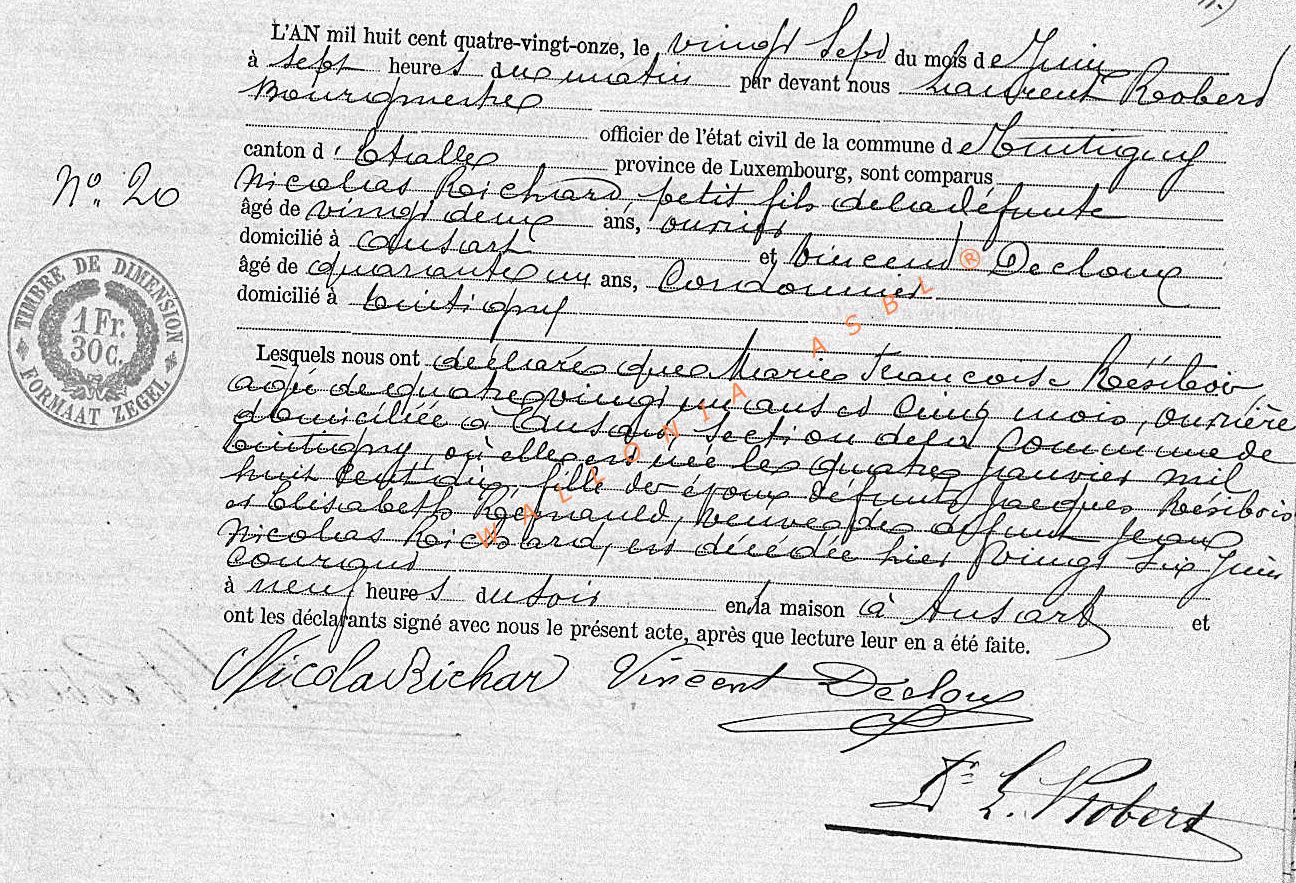 L'AN mil huit cent quatre-vingt-onze, le vingt sept du mois de Juin
à sept heures du matin par devant nous Laurent Robert
Bourgmestre
officier de l'état civil de la commune de
canton d'Etalle province de Luxembourg, sont comparus
N° 20
Nicolas Richard, petit fils de la défunte
âgé de vingt deux ans, ouvrier
domicilié à Ansart et Vincent Decloux
âgé de quarante un ans, Cordonnier
domicilié à tintigny
TIMBRE DE DIMENSION
1 Fr.
30 c.
FORMAAT ZEGEL
Lesquels nous ont déclaré que Marie Françoise Résibois,
agée de quatre vingt un ans et cinq mois, ouvrière
domiciliée à Ansart section de la Commune de
tintigny, où elle est née le quatre janvier mil
huit cent dix, fille des époux défunts Jacques Résibois
et Elisabeth veuve de defunt Jean
Nicolas Richard, est décédée hier vingt six Juin
courant
à neuf heures du soir en la maison à Ansart et
ont les déclarants signé avec nous le présent acte, après que lecture leur en a été faite.
Nicola Richar Vincent Decloux
Dr L. Robert
WALLONIA ASBL ®